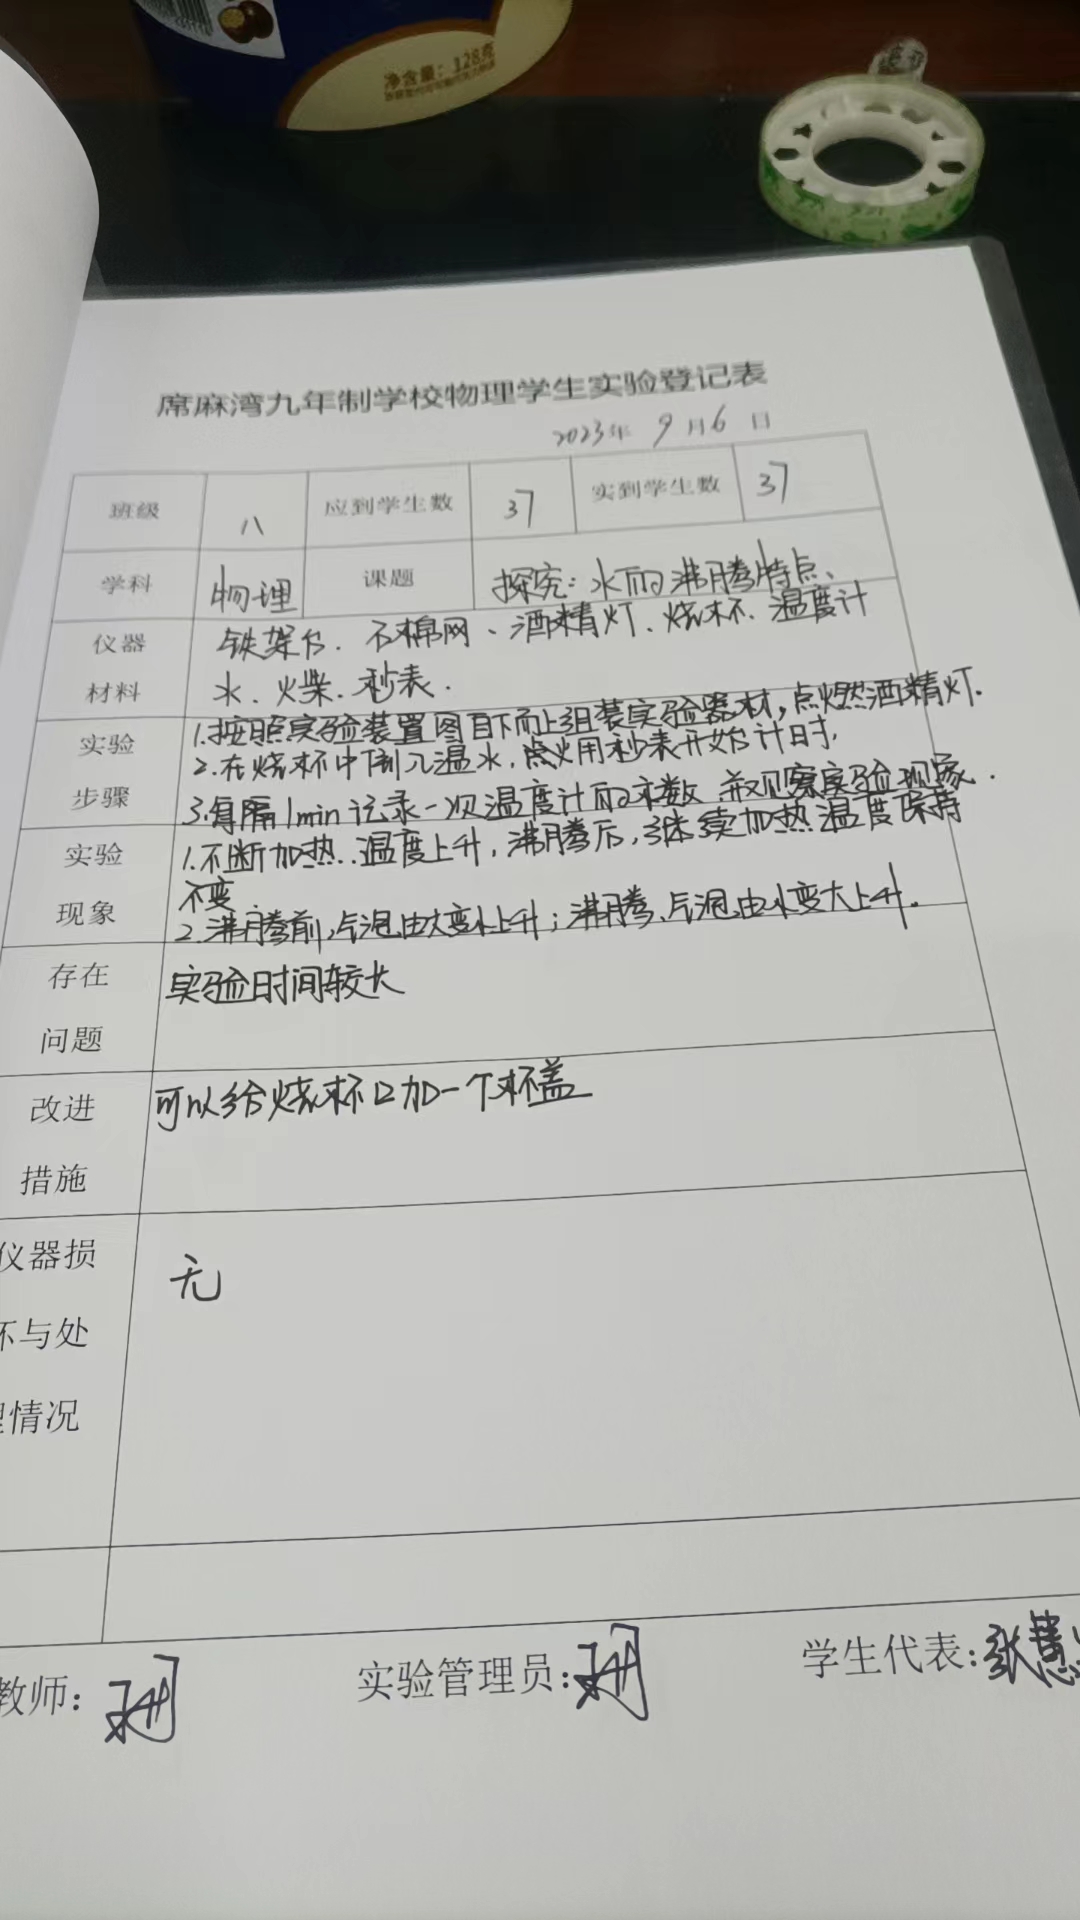 净含量：128克
席麻湾九年制学校物理学生实验登记表
2023年 9月6日
班级 八 应到学生数 37 实到学生数 37
学科 物理 课题 探究：水的沸腾特点、
仪器材料 铁架台、石棉网、酒精灯、烧杯、温度计
水、火柴、秒表.
实验步骤 1.按照实验装置图自下而上组装实验器材，点燃酒精灯.
2.在烧杯中倒入温水，点火用秒表开始计时，
3.每隔1min记录一次温度计的示数，并观察实验现象.
实验现象 1.不断加热..温度上升，沸腾后，继续加热温度保持
不变
2.沸腾前，气泡由大变小上升；沸腾、气泡由小变大上升.
存在问题 实验时间较长
改进措施 可以给烧杯口加一个杯盖
仪器损坏与处理情况 无
教师：
实验管理员：
学生代表：张慧